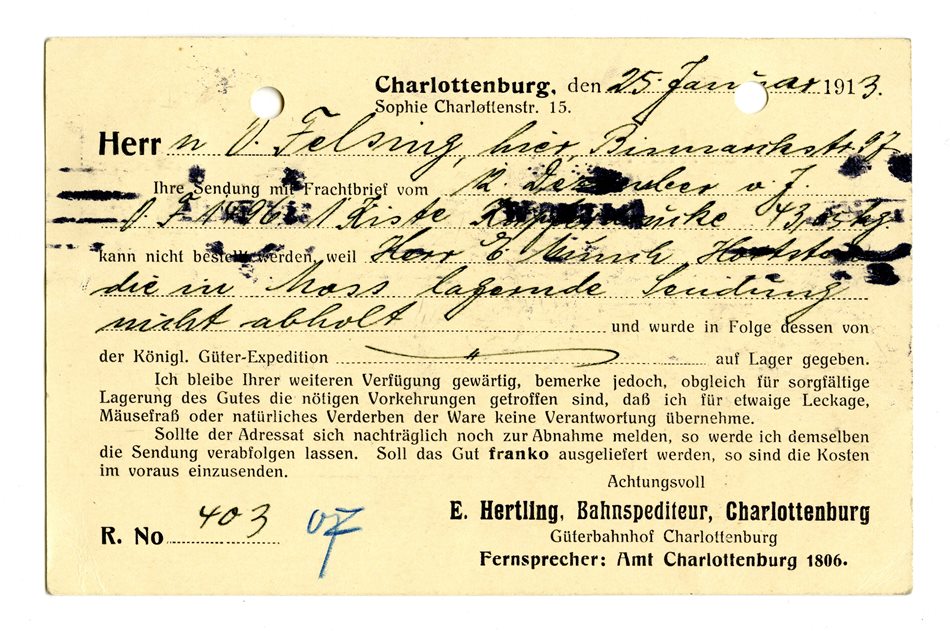 Charlottenburg, den 25. Januar 1913.
Sophie Charlottenstr. 15.
Herrn O. Felsing, hier, Bismarckstr.
Ihre Sendung mit Frachtbrief vom 12. Dezember v. J.
O. F. 1 Kiste Kupferdrucke 43, kg.
kann nicht bestellt werden, weil Herr E Munch,
die in Moss lagernde Sendung
nicht abholt und wurde in Folge dessen von
der Königl. Güter-Expedition " auf Lager gegeben.
Ich bleibe Ihrer weiteren Verfügung gewärtig, bemerke jedoch, obgleich für sorgfältige
Lagerung des Gutes die nötigen Vorkehrungen getroffen sind, daß ich für etwaige Leckage,
Mäusefraß oder natürliches Verderben der Ware keine Verantwortung übernehme.
Sollte der Adressat sich nachträglich noch zur Abnahme melden, so werde ich demselben
die Sendung verabfolgen lassen. Soll das Gut franko ausgeliefert werden, so sind die Kosten
im voraus einzusenden.
Achtungsvoll
E. Hertling, Bahnspediteur, Charlottenburg
Güterbahnhof Charlottenburg
Fernsprecher: Amt Charlottenburg 1806.
R. No 403